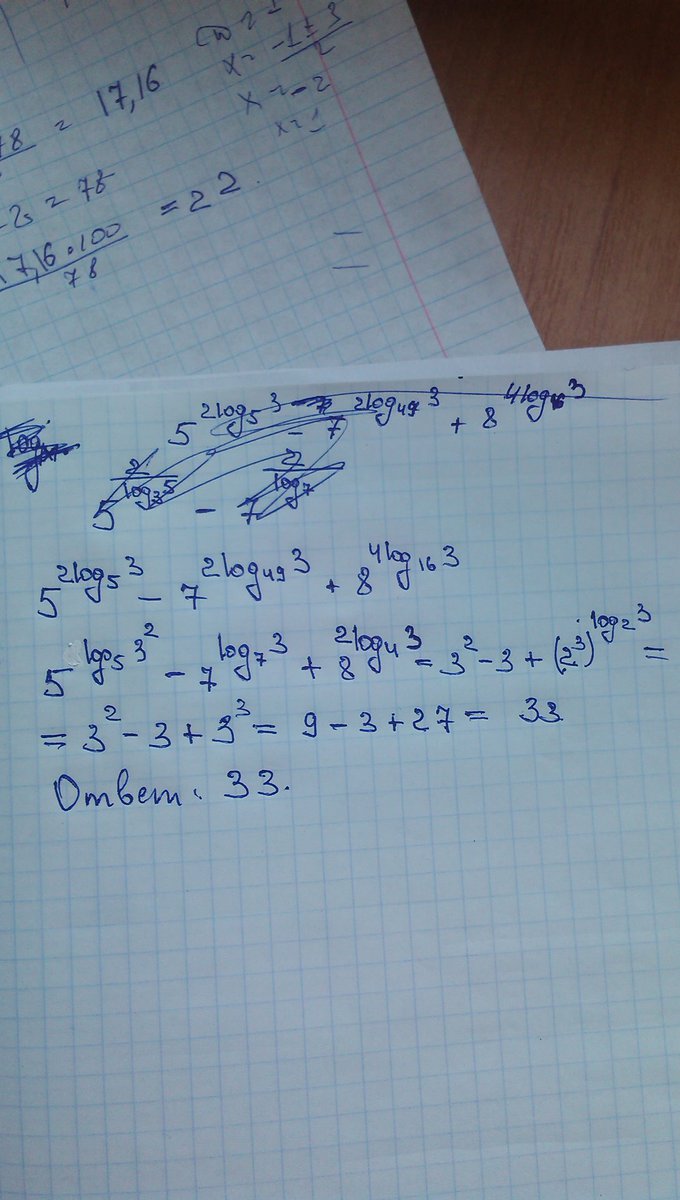 D = 1
x = -1 ± 3 / 2
x = -2
x = 1
78 = 17,16
= 78
17,16 · 100 / 78 = 22
5^{2log_5 3} - 7^{2log_{49} 3} + 8^{4log_{16} 3}
5^{2/log_3 5} - 7^{2/log_7}
5^{2log_5 3} - 7^{2log_{49} 3} + 8^{4log_{16} 3}
5^{log_5 3^2} - 7^{log_7 3} + 8^{2log_4 3} = 3^2 - 3 + (2^3)^{log_2 3} =
= 3^2 - 3 + 3^3 = 9 - 3 + 27 = 33
Ответ: 33.